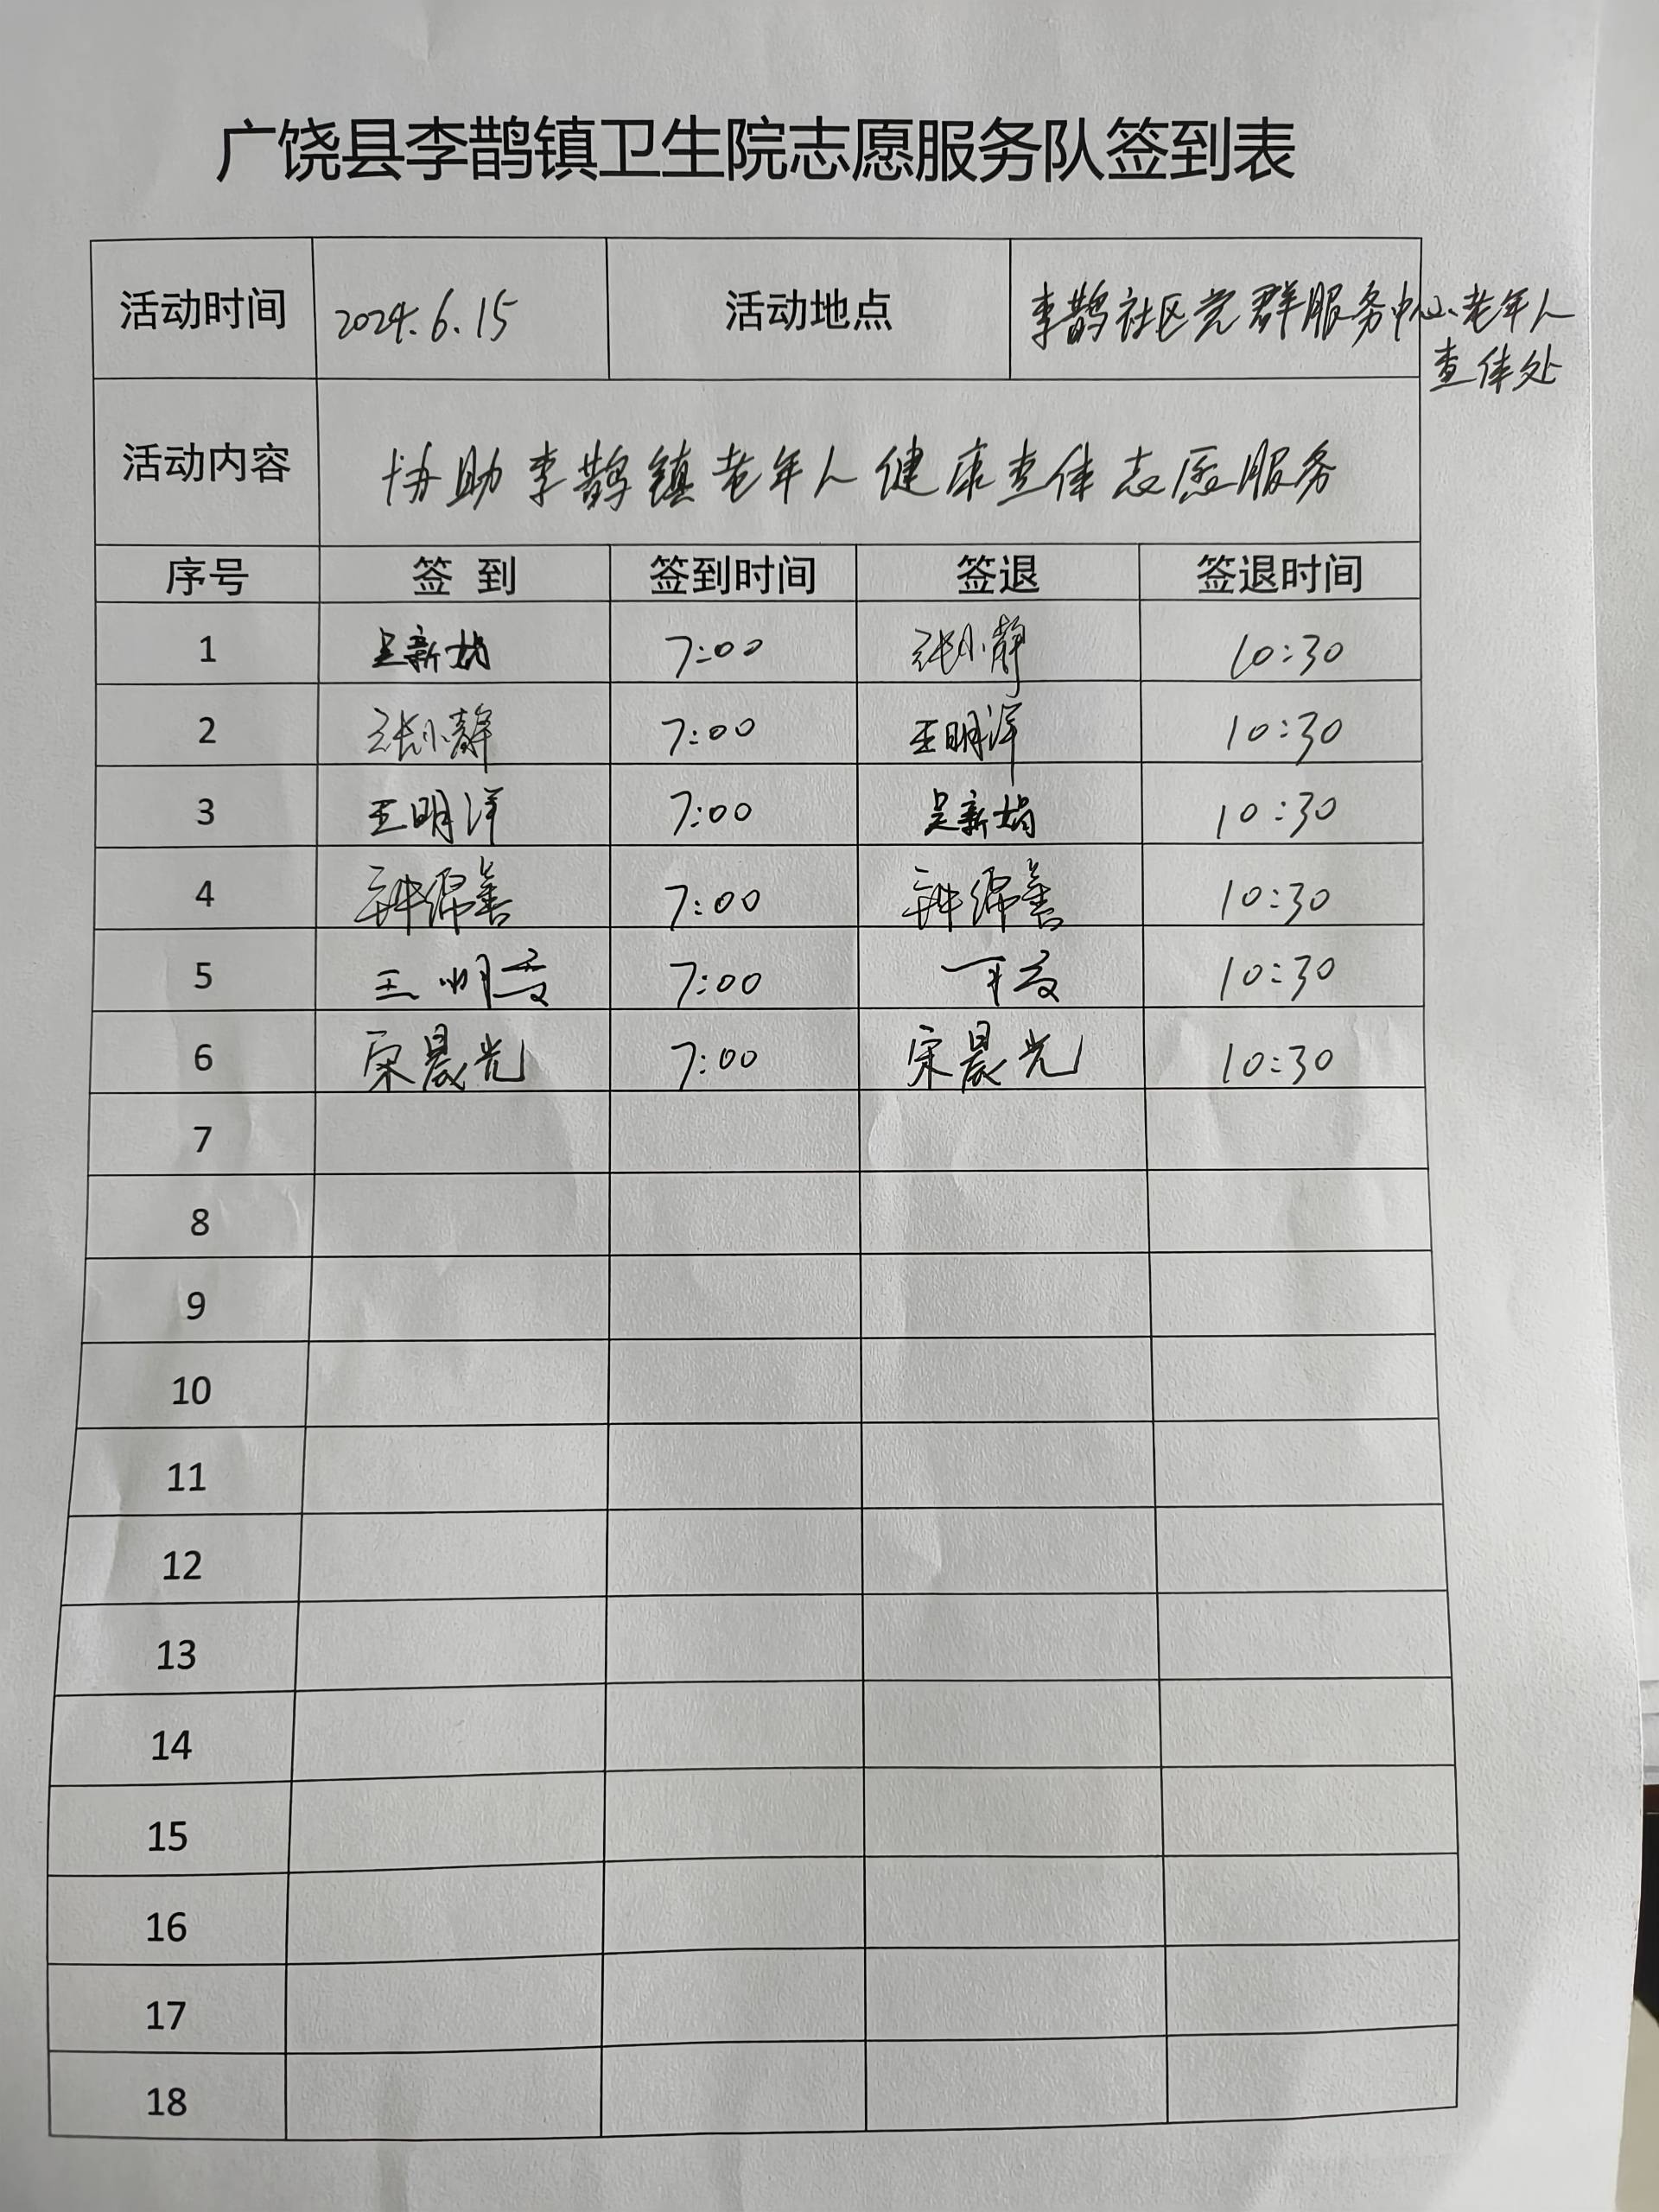 广饶县李鹊镇卫生院志愿服务队签到表
活动时间 2024.6.15 活动地点 李鹊社区党群服务中心老年人
查体处
活动内容 协助李鹊镇老年人健康查体志愿服务
序号 签 到 签到时间 签退 签退时间
1 吴新娟 7:00 张小静 10:30
2 张小静 7:00 王明洋 10:30
3 王明洋 7:00 吴新娟 10:30
4 7:00 10:30
5 王明 7:00 10:30
6 宋晨光 7:00 宋晨光 10:30
7
8
9
10
11
12
13
14
15
16
17
18